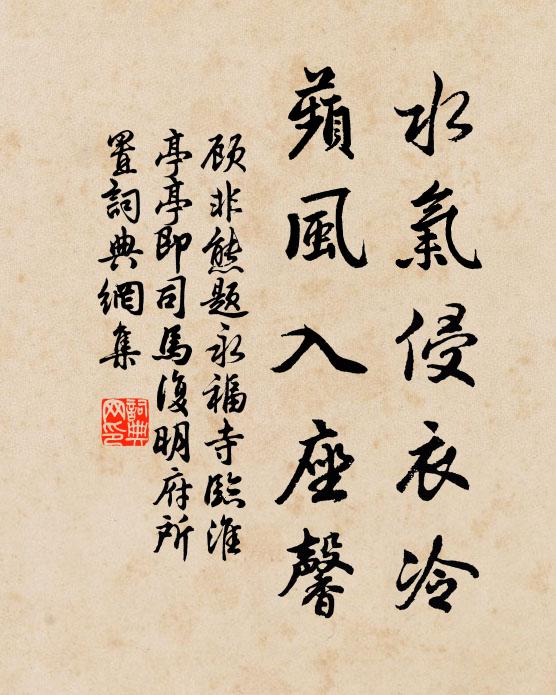 水氣侵衣冷
蘋風入座馨
顾非熊题永福寺臨淮
亭亭即司馬復明府所
置詞典網集
詞典
网印